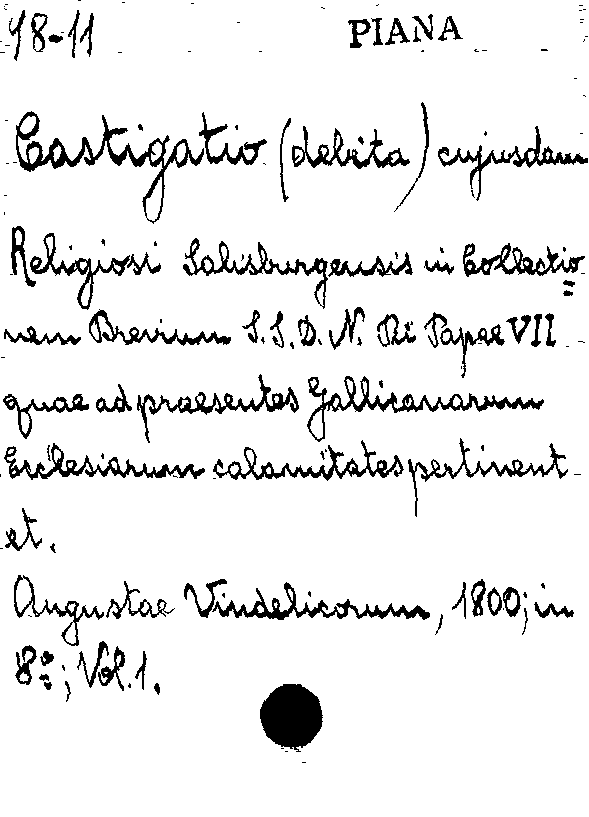 98-11 PIANA
Castigatio (debita) cujusdam
Religiosi Salisburgensis in Collectio=
nem Brevium S.S.D.N. Pii Papae VII
quae ad praesentes Gallicanarum
Ecclesiarum calamitates pertinent
et.
Augustae Vindelicorum, 1800; in
8º; Vol. 1.